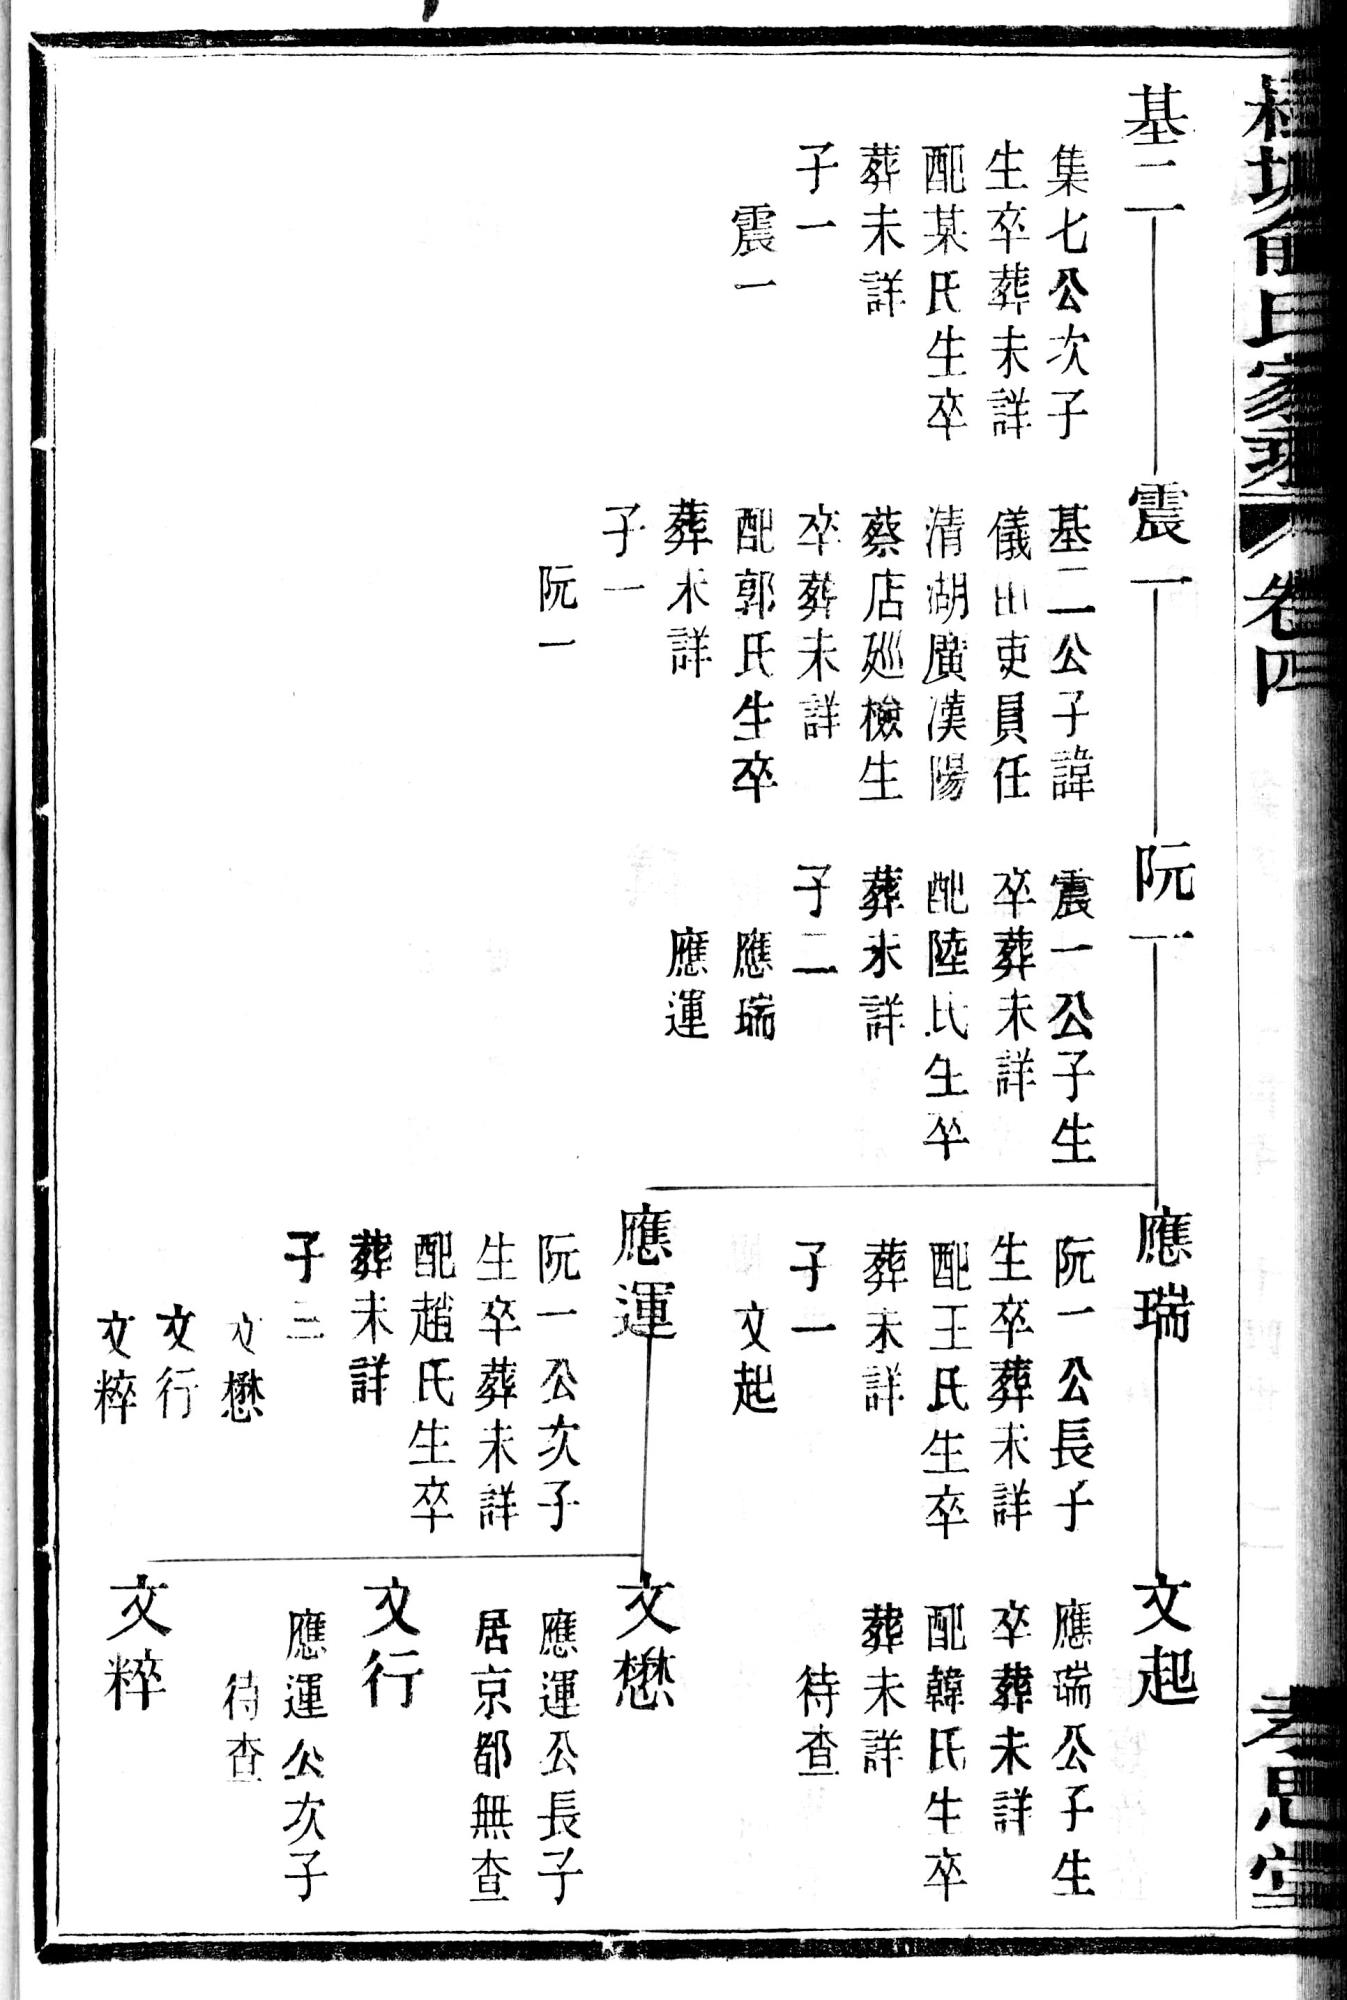 俞氏家乘
卷四
孝思堂
基二
集七公次子
生卒葬未詳
配某氏生卒
葬未詳
子一
震一
震一
基二公子諱
儀山吏員任
清湖廣漢陽
蔡店廵檢生
卒葬未詳
配郭氏生卒
葬未詳
子一
阮一
阮一
震一公子生
卒葬未詳
配陸氏生卒
葬未詳
子二
應瑞
應運
應瑞
阮一公長子
生卒葬未詳
配王氏生卒
葬未詳
子一
文起
應運
阮一公次子
生卒葬未詳
配趙氏生卒
葬未詳
子三
文懋
文行
文粹
文起
應瑞公子生
卒葬未詳
配韓氏生卒
葬未詳
待查
文懋
應運公長子
居京都無查
文行
應運公次子
待查
文粹